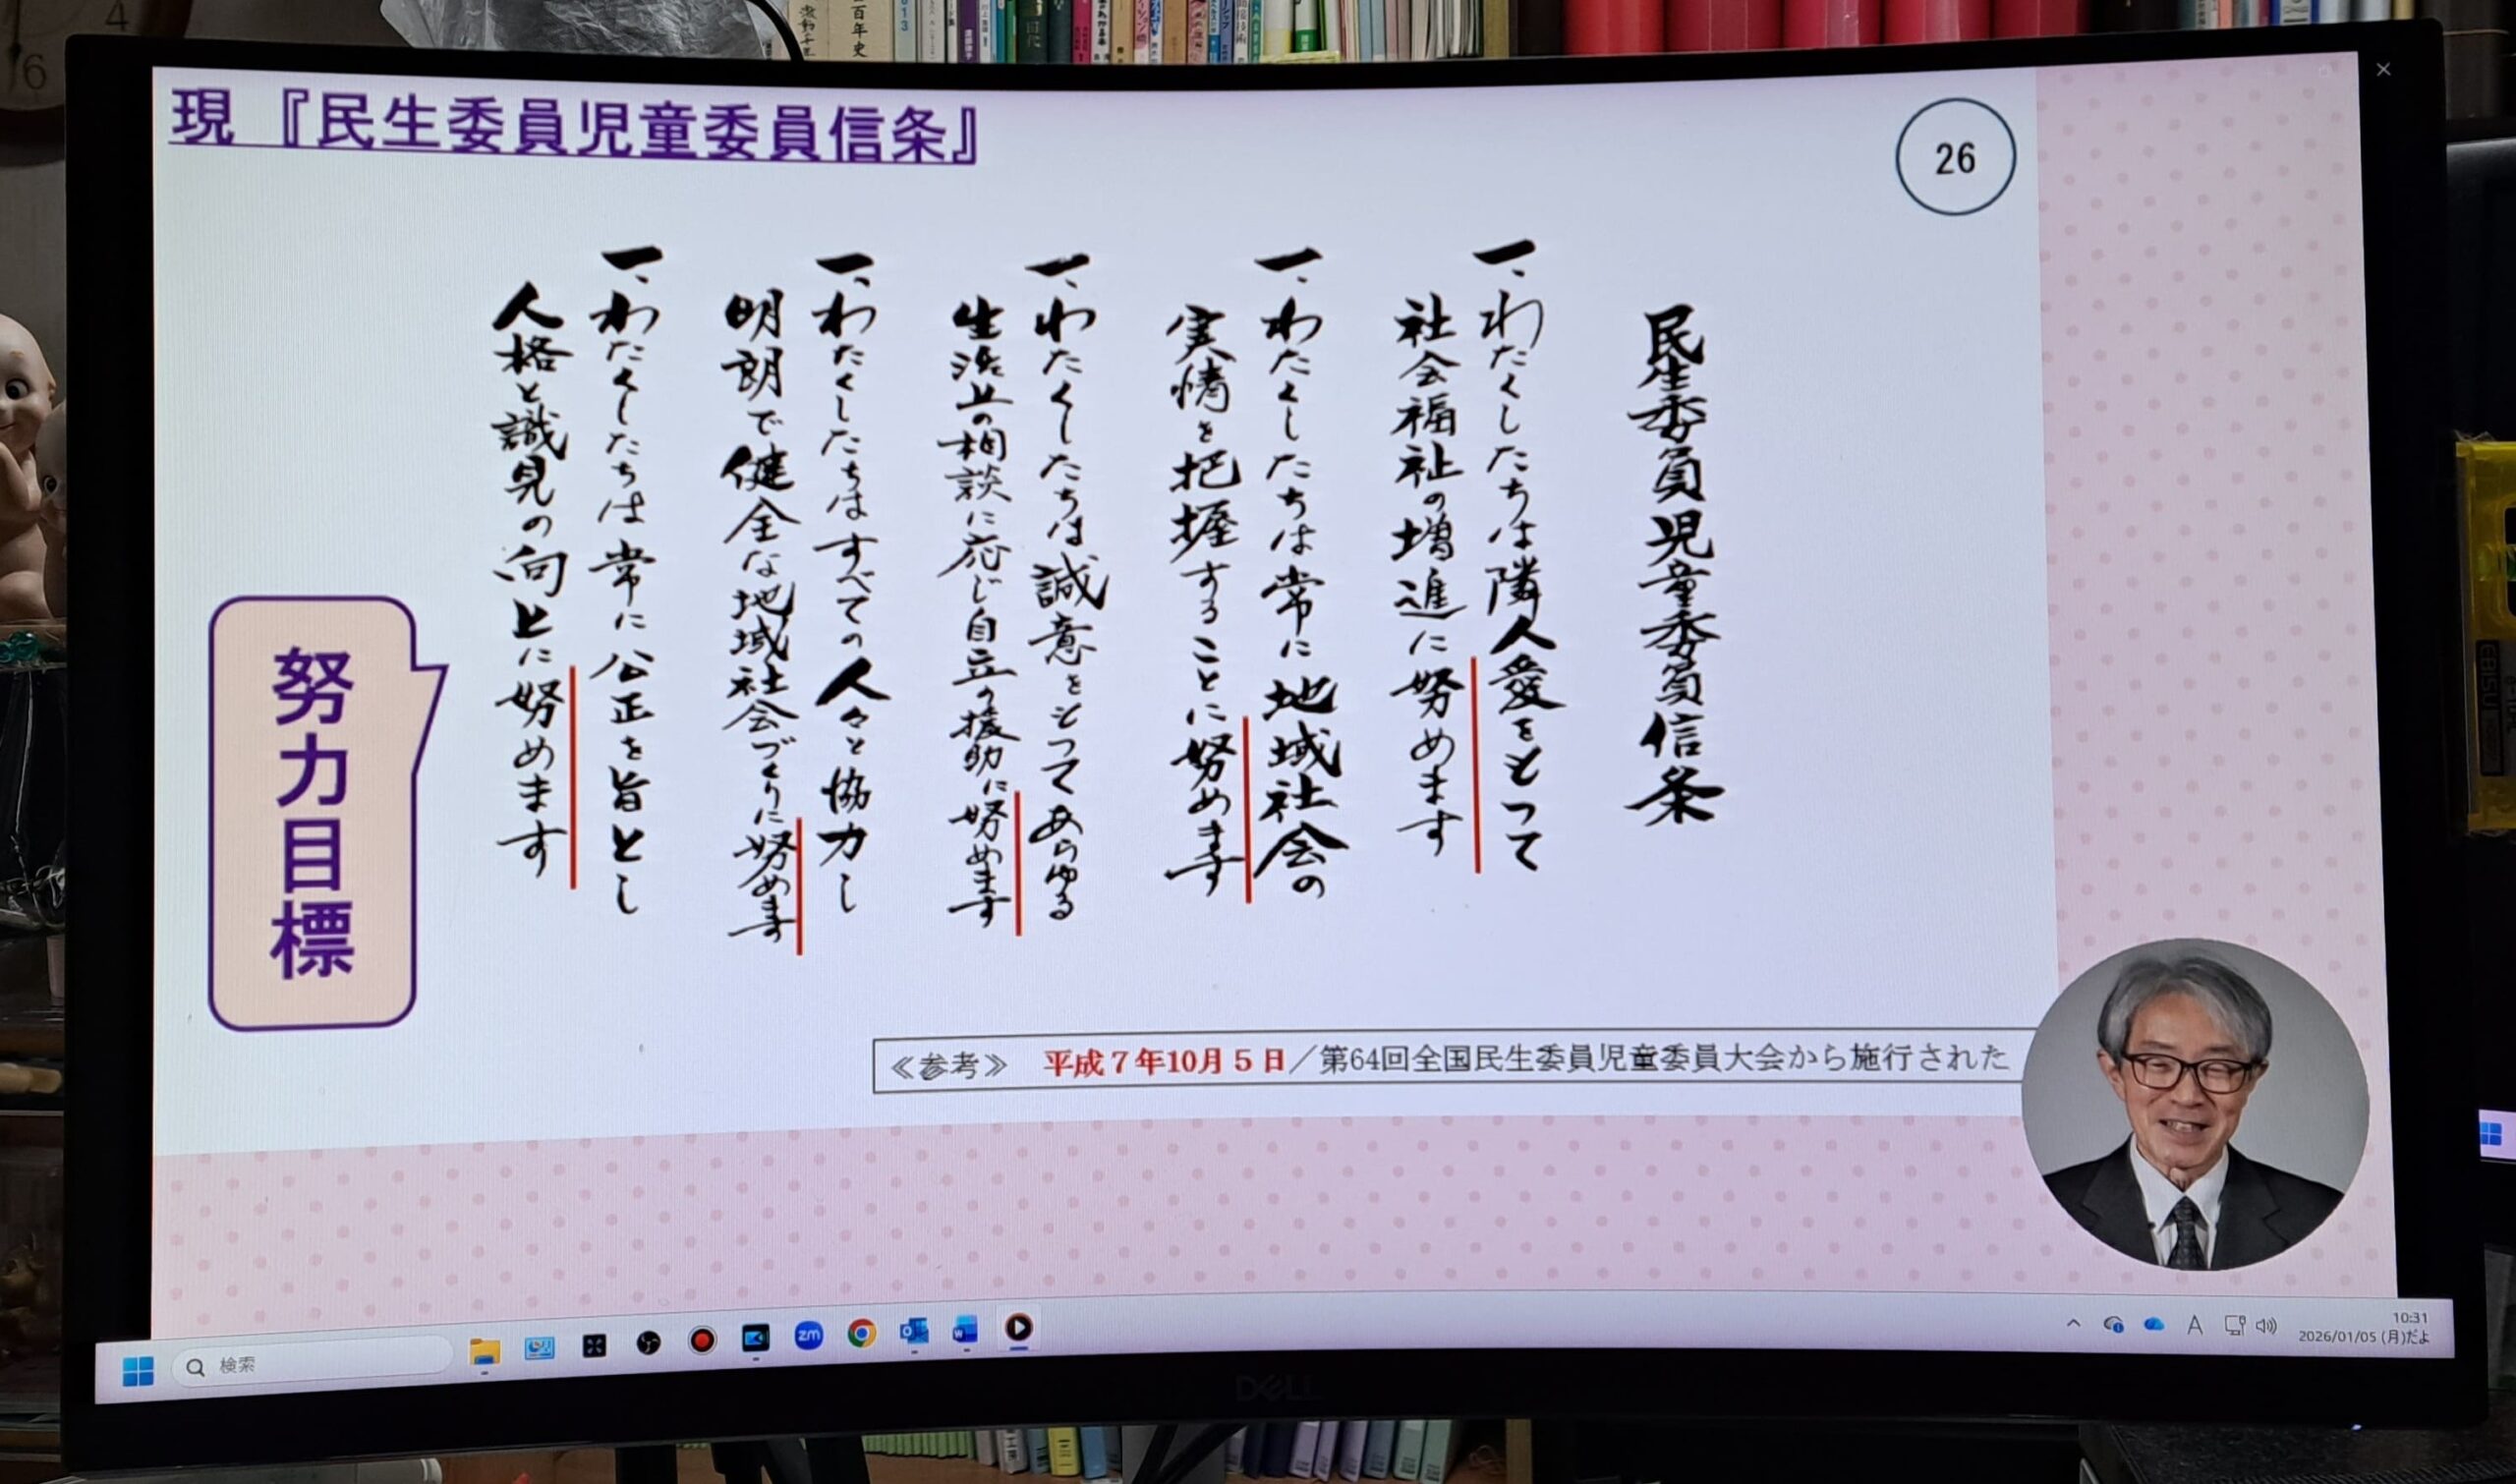 現『民生委員児童委員信条』
26
民生委員児童委員信条
一、わたくしたちは隣人愛をもって
社会福祉の増進に努めます
一、わたくしたちは常に地域社会の
実情を把握することに努めます
一、わたくしたちは誠意をもってあらゆる
生活上の相談に応じ自立の援助に努めます
一、わたくしたちはすべての人々と協力し
明朗で健全な地域社会づくりに努めます
一、わたくしたちは常に公正を旨とし
人格と識見の向上に努めます
努力目標
≪参考≫ 平成7年10月5日／第64回全国民生委員児童委員大会から施行された
検索
zm
A
10:31
2026/01/05 (月)だよ
DELL
百年史
4
6
EBISU